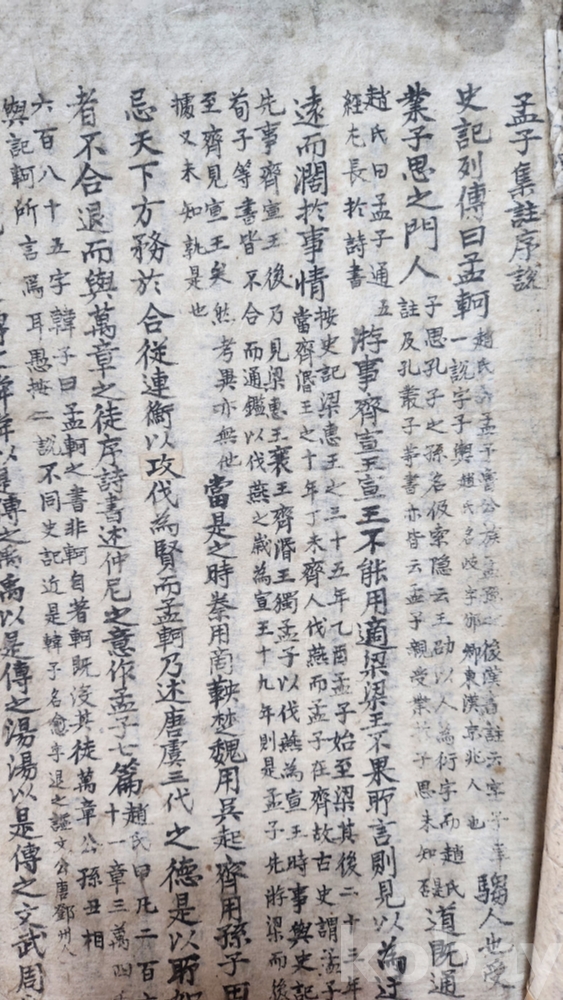 孟子集註序說
史記列傳曰孟軻
趙氏曰孟子魯公族孟孫之後漢書註云字子車
一說字子輿趙氏名岐字邠卿東漢京兆人也
騶人也受
業子思之門人
子思孔子之孫名伋索隐云王劭以人為衍字而趙氏
註及孔叢子等書亦皆云孟子親受業於子思未知是
道既通
趙氏曰孟子通五
經尤長於詩書
游事齊宣王宣王不能用適梁梁王不果所言則見以為迂
遠而濶於事情
按史記梁惠王之三十五年乙酉孟子始至梁其後二十三年
當齊湣王之十年丁未齊人伐燕而孟子在齊故古史謂孟子
先事齊宣王後乃見梁惠王襄王齊湣王獨孟子以伐燕為宣王時事與史記
荀子等書皆不合而通鑑以伐燕之歲為宣王十九年則是孟子先游梁而後
至齊見宣王矣然考異亦無他
據又未知孰是也
當是之時秦用商鞅楚魏用吳起齊用孫子田
忌天下方務於合從連衡以攻伐為賢而孟軻乃述唐虞三代之德是以所如
者不合退而與萬章之徒序詩書述仲尼之意作孟子七篇
趙氏曰凡二百六
十一章三萬四
六百八十五字韓子曰孟軻之書非軻自著軻既沒其徒萬章公孫丑相
與記軻所言焉耳愚按二說不同史記近是韓子名愈字退之謚文公唐鄧州人
舜舜以是傳之禹禹以是傳之湯湯以是傳之文武周